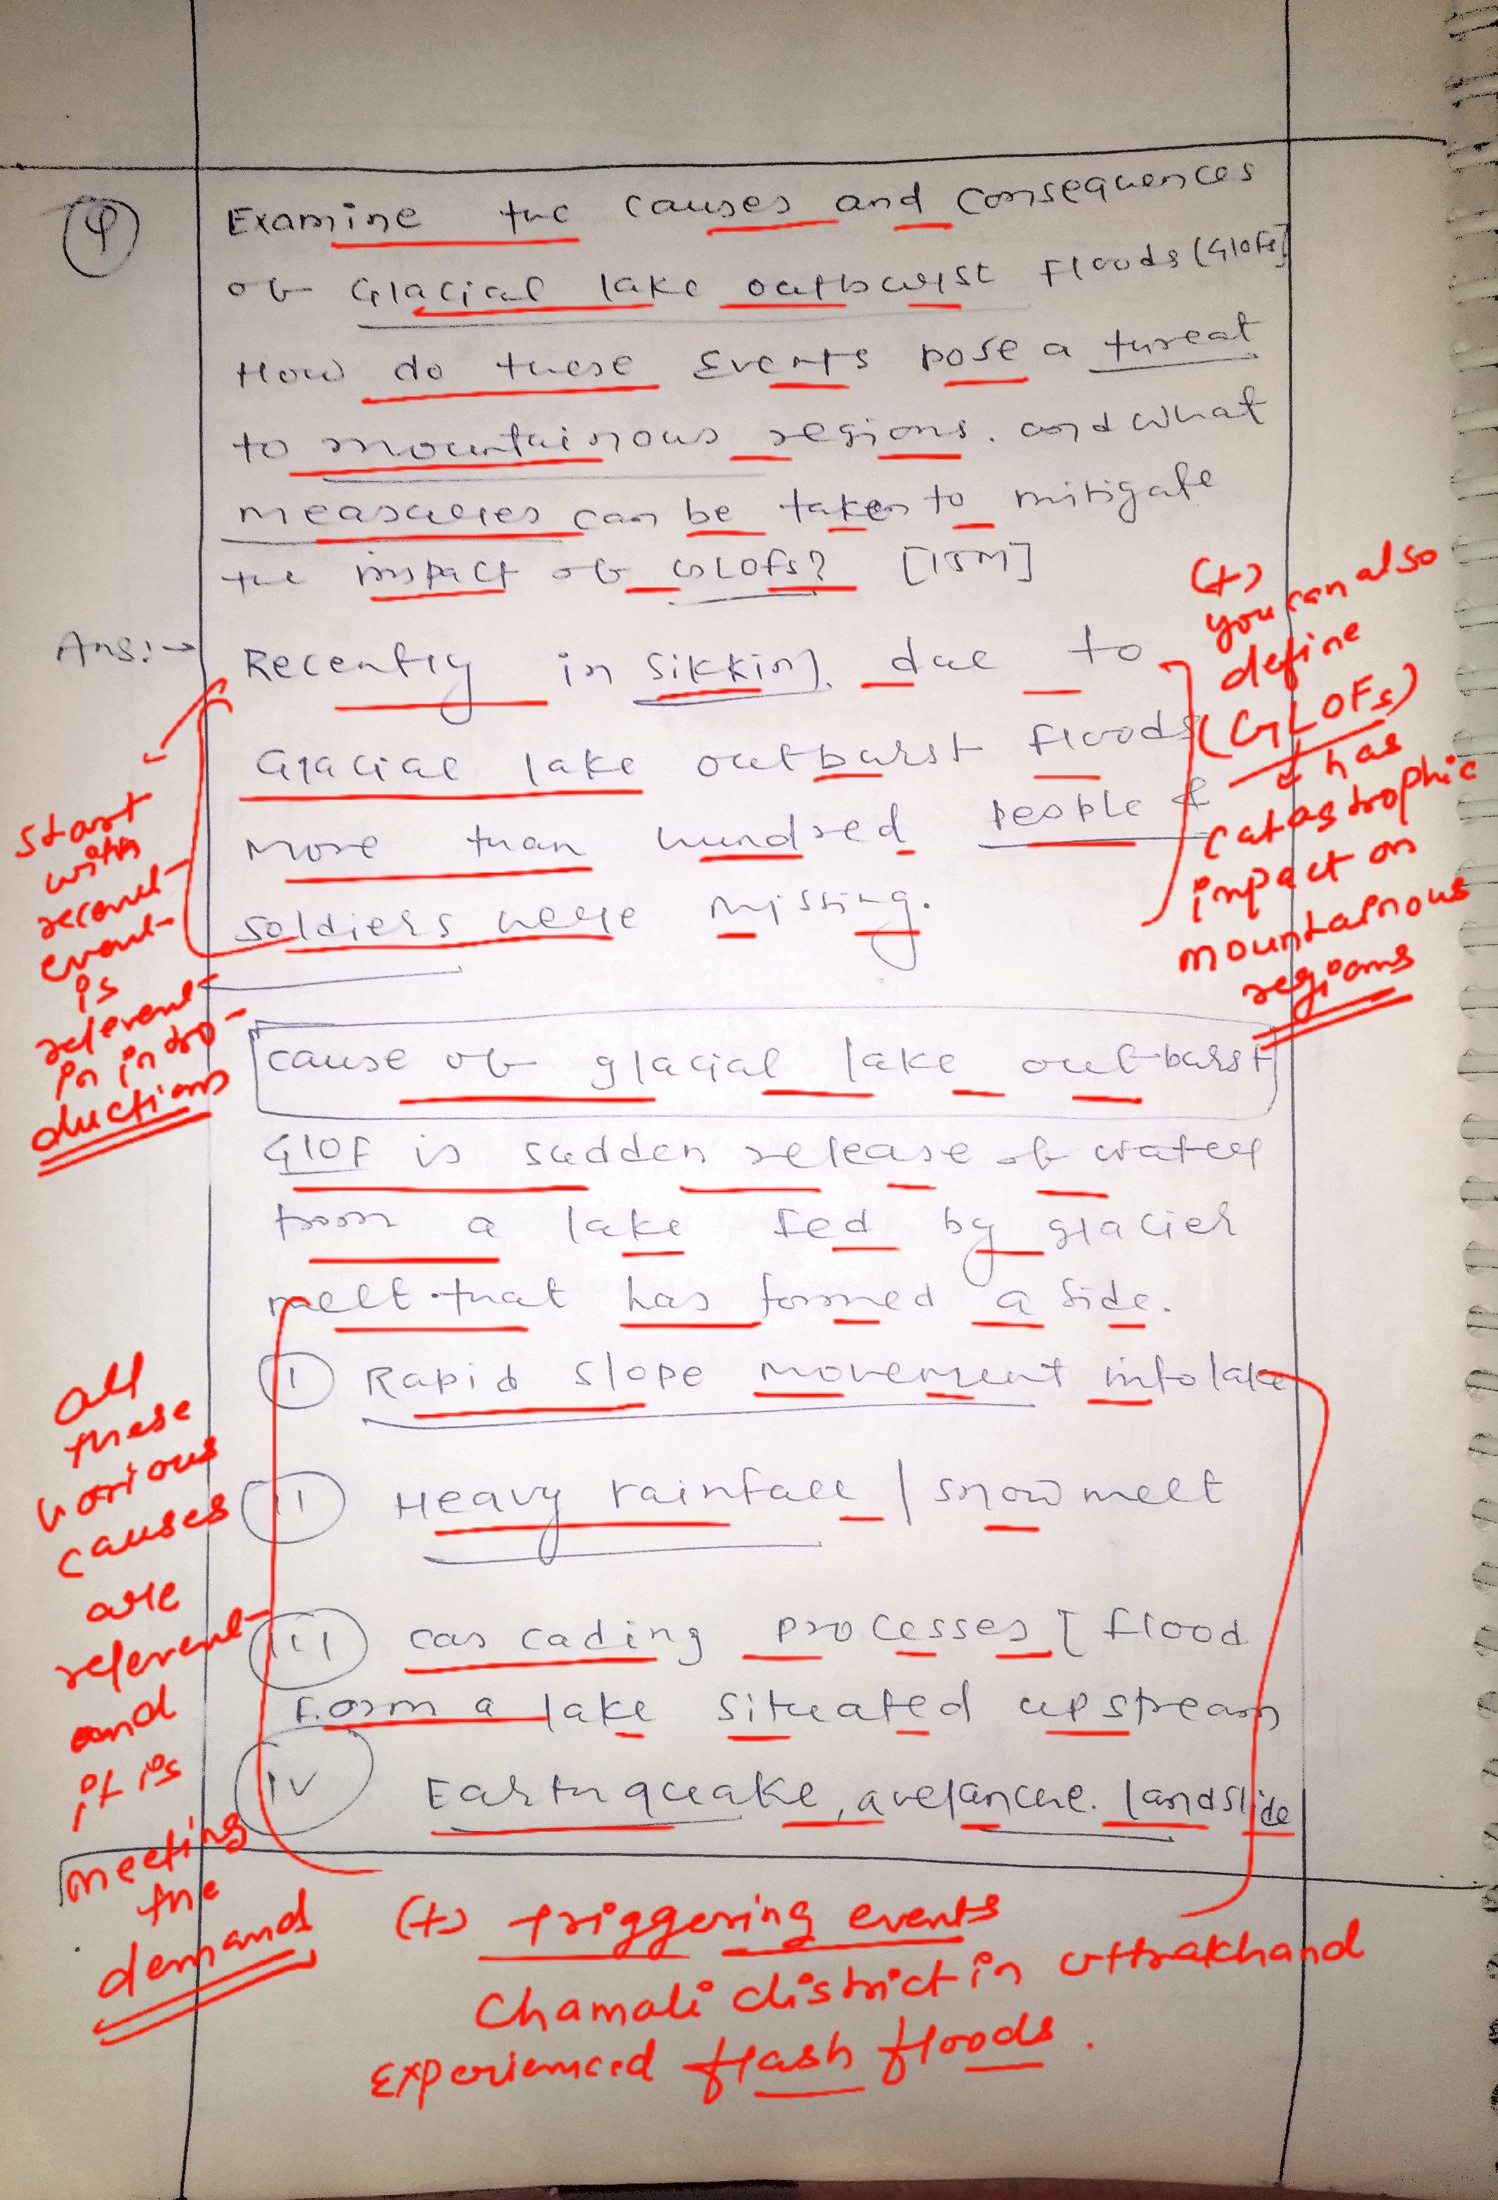 4
Examine the causes and consequences
of Glacial lake outburst floods (GlOFs)
How do these Events pose a threat
to mountainous regions. and what
measures can be taken to mitigate
the impact of GLOFs? [15M]
Ans:→
Recently in Sikkim, due to
Glacial lake outburst floods
more than hundred people &
soldiers were missing.
(+)
you can also
define
(GLOFs)
has
catastrophic
impact on
mountainous
regions
start
with
recent
event
is
relevent
in intro-
ductions
cause of glacial lake out-burst
GlOF is sudden release of water
from a lake fed by glacier
melt that has formed a side.
(I) Rapid slope movement into lake
(II) Heavy rainfall / snowmelt
(III) cascading processes [flood
form a lake situated upstream
(IV) Earthquake, avelanche. landslide
all
these
various
causes
are
relevent
and
it is
meeting
the
demand
(+) triggering events
Chamoli district in uttrakhand
experienced flash floods.